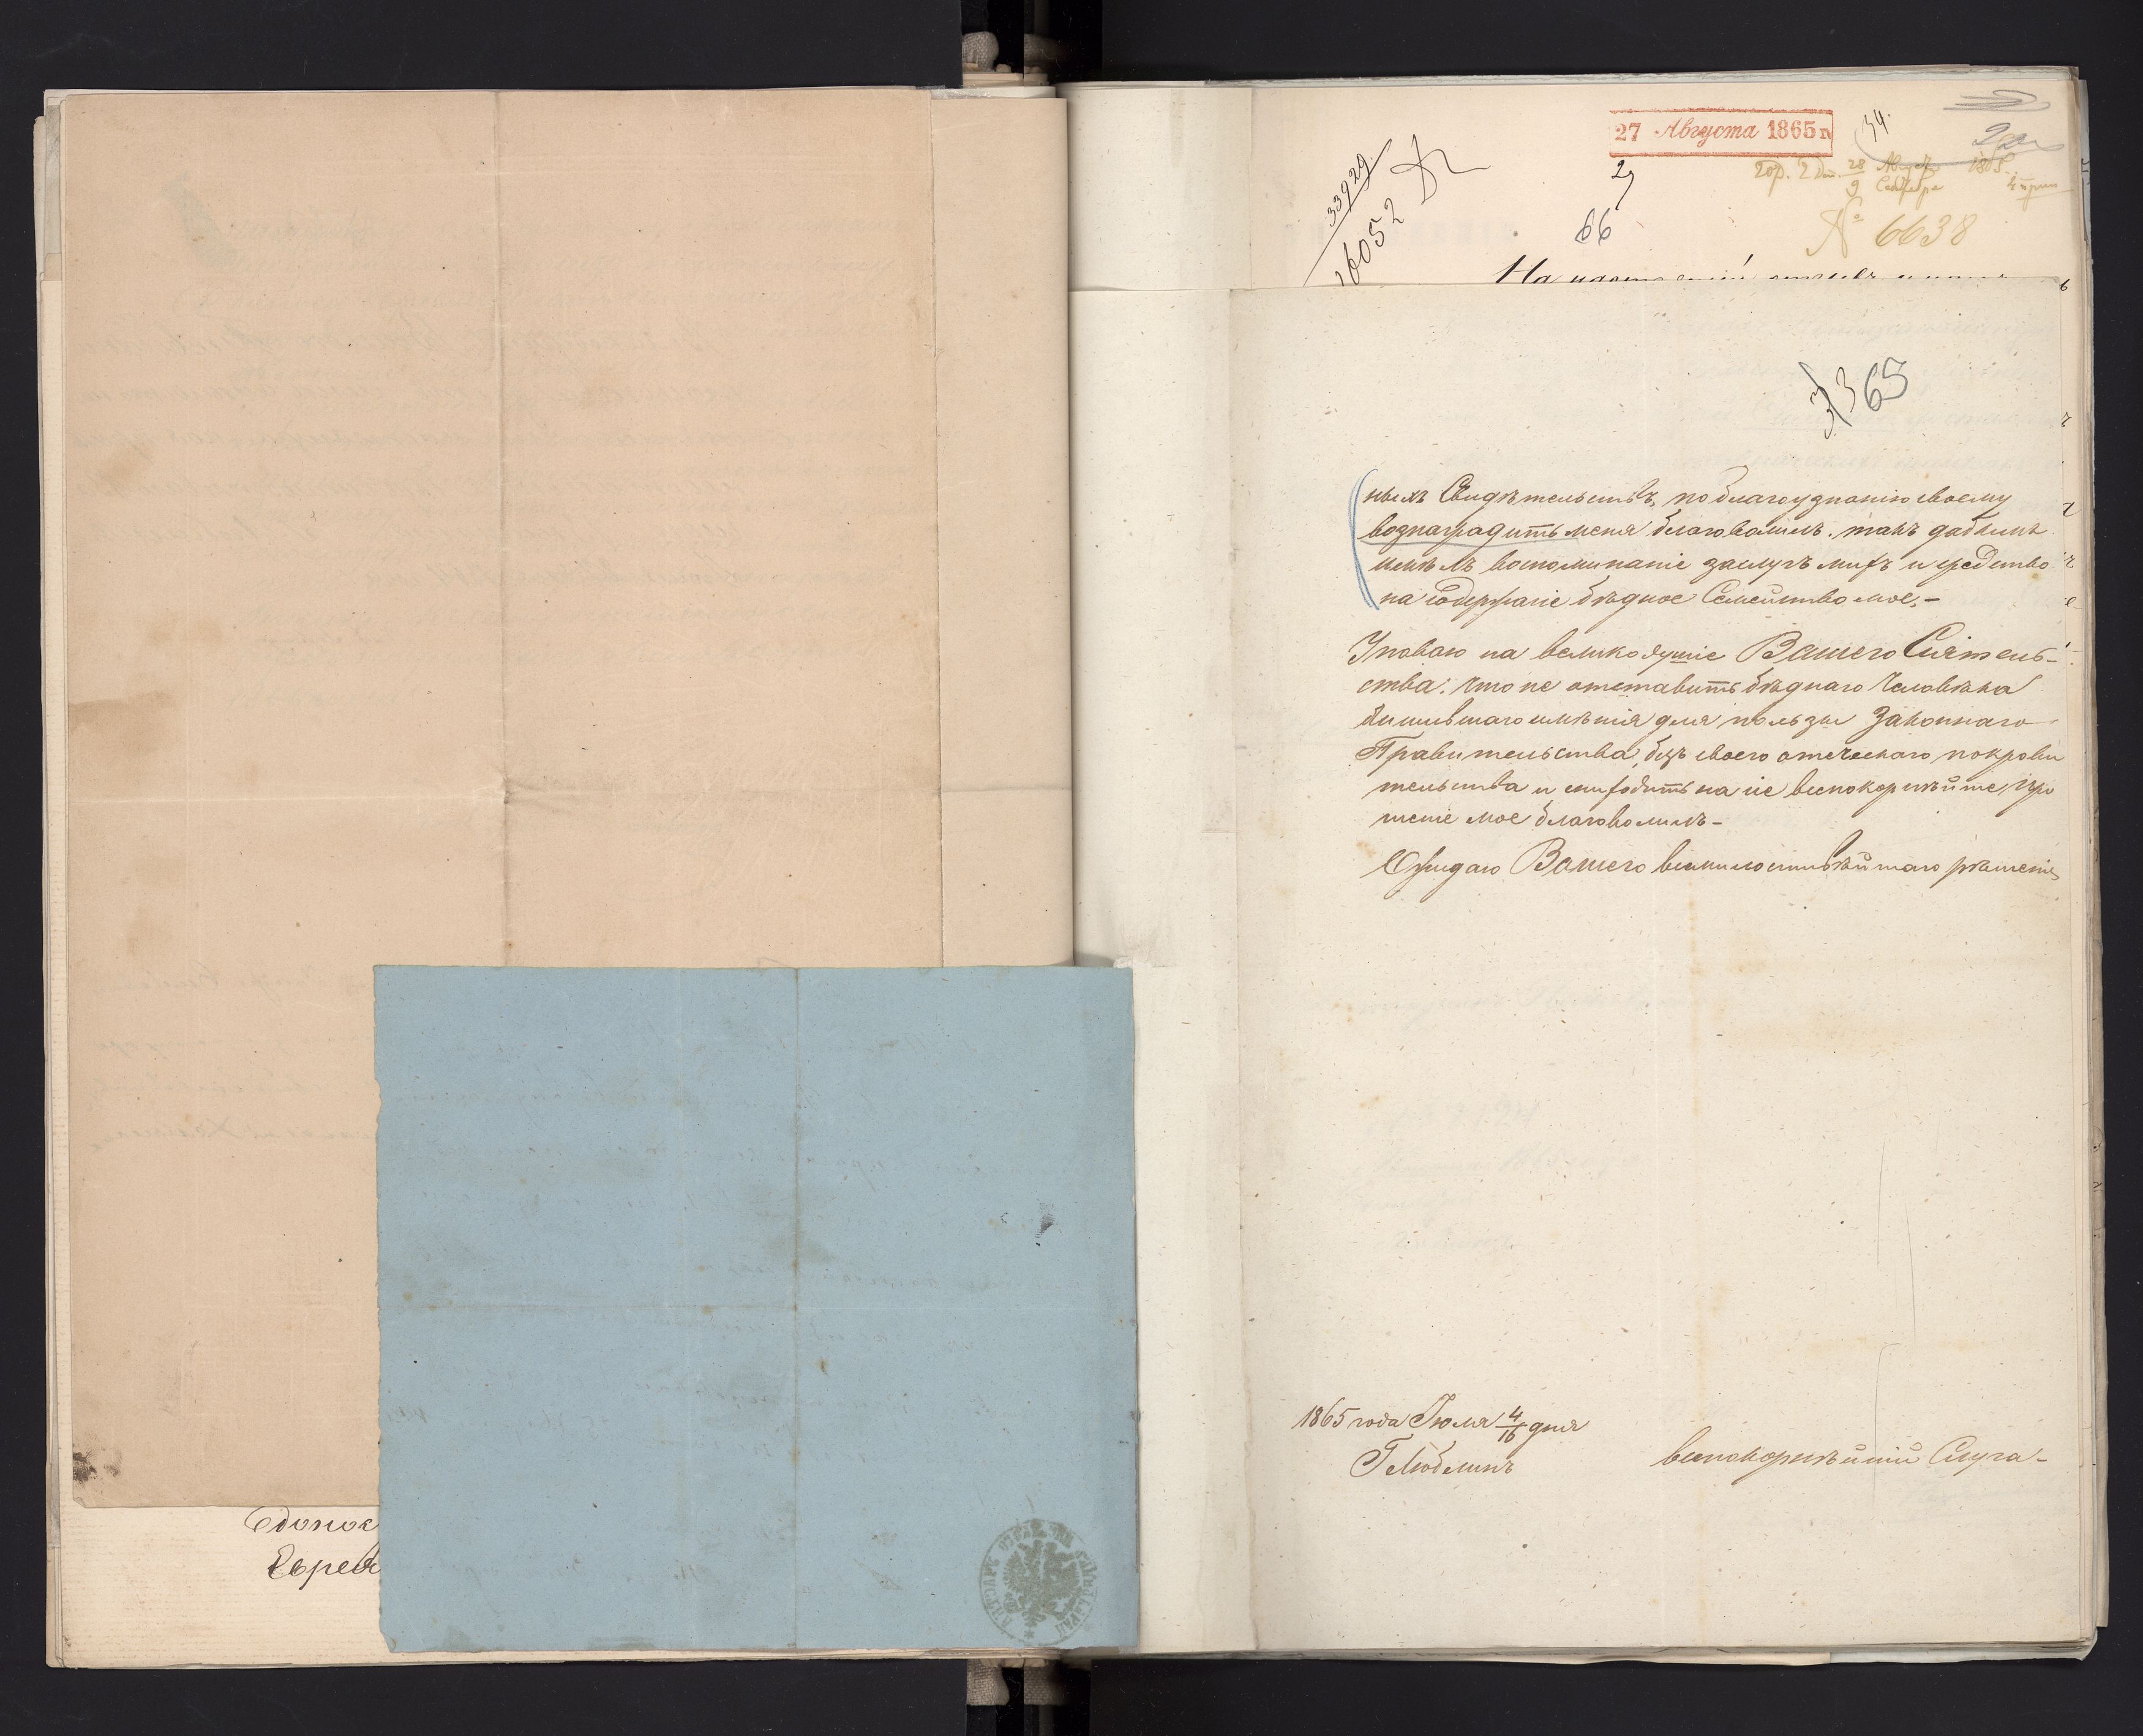 27 Августа 1865 г.
34.
33929
16052
2
66
28 Августа 1865
9 Сентября
№ 6638
На
365
ныхъ Свидѣтельствъ, по благоузнанію своему
вознаградить меня благоволилъ. такъ дабы имъ
имѣлъ воспоминаніе заслугъ и средство
на содержаніе бѣдное Семейство мое, –
Уповаю на великодушіе Вашего Сіятель-
ства. что не отставитъ бѣднаго Человѣка
лишившаго имѣнія для пользы Законнаго
Правительства, безъ своего отеческаго покрови
тельства и на сіе всепокорнѣйше про
шеніе мое благоволилъ –
Ожидаю Вашего всемилостивѣйшаго рѣшенія
1865 года Іюля 4/16 дня
Г Люблинъ
всепокорнѣйшій Слуга –
Еврея